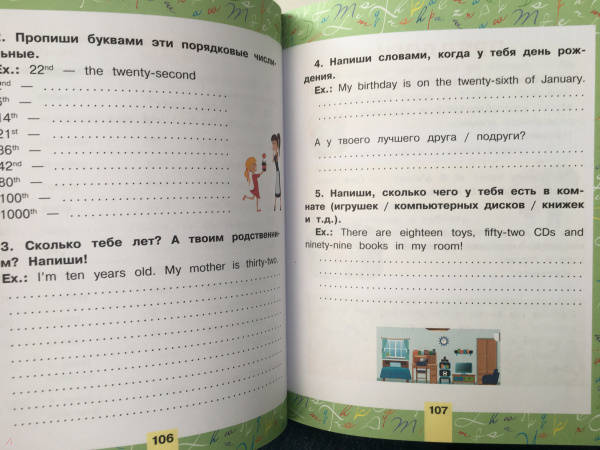 2. Пропиши буквами эти порядковые числи-
льные.
Ex.: 22nd — the twenty-second
14th —
21st —
36th —
42nd —
80th —
100th —
1000th —
3. Сколько тебе лет? А твоим родственни-
ам? Напиши!
Ex.: I'm ten years old. My mother is thirty-two.
106
4. Напиши словами, когда у тебя день рож-
дения.
Ex.: My birthday is on the twenty-sixth of January.
А у твоего лучшего друга / подруги?
5. Напиши, сколько чего у тебя есть в ком-
нате (игрушек / компьютерных дисков / книжек
и т.д.).
Ex.: There are eighteen toys, fifty-two CDs and
ninety-nine books in my room!
107